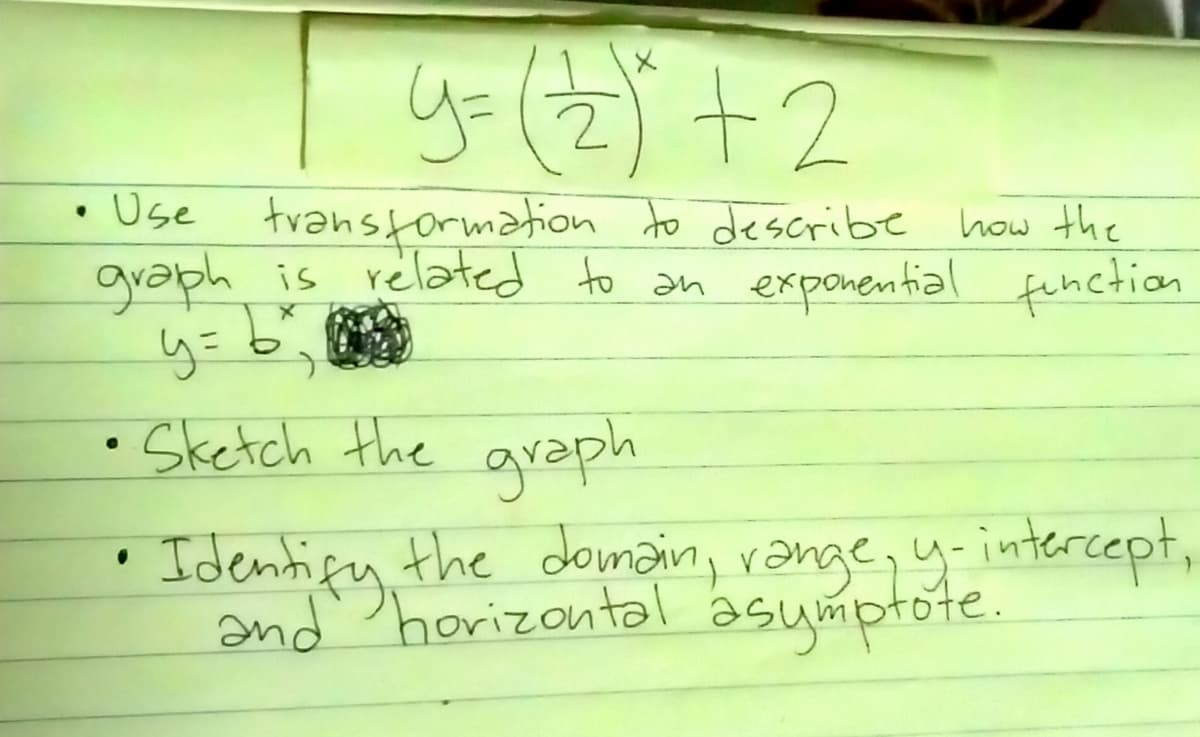 y = (1/2)^x + 2
• Use transformation to describe how the
graph is related to an exponential function
y = b^x,
• Sketch the graph
• Identify the domain, range, y-intercept,
and horizontal asymptote.